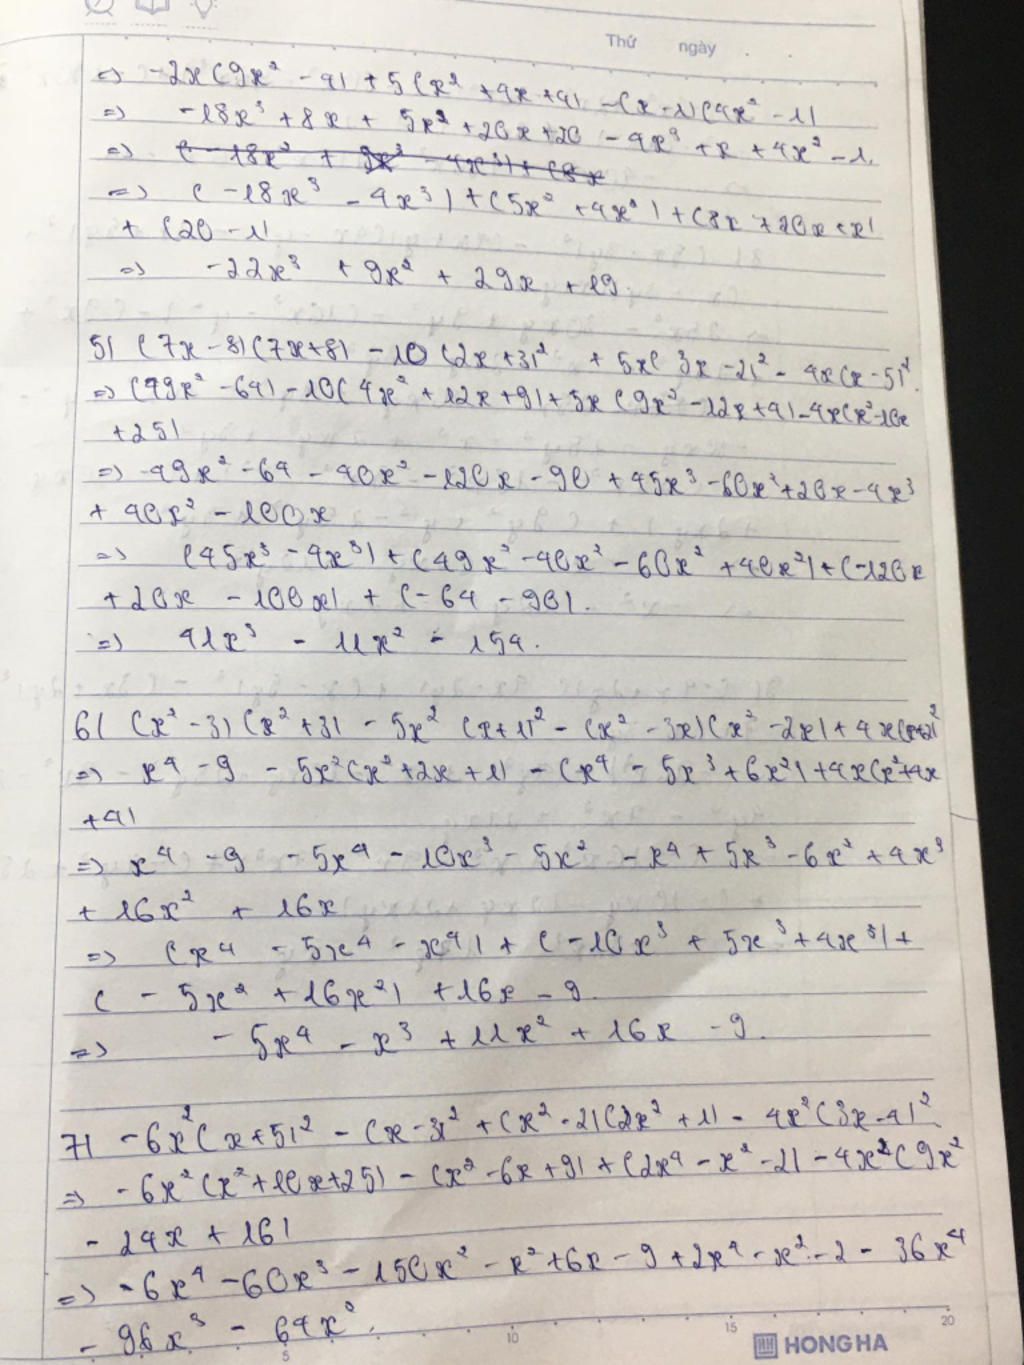 Thứ ngày
=> -2x(9x² - 4) + 5(x² + 4x + 4) - (x - 1)(4x² - 1)
=> -18x³ + 8x + 5x² + 20x + 20 - 4x³ + x + 4x² - 1.
=> (-18x³ + 9x³ - 4x³) + (8x
=> (-18x³ - 4x³) + (5x² + 4x²) + (8x + 20x + x)
+ (20 - 1)
=> -22x³ + 9x² + 29x + 19.
5) (7x - 8)(7x + 8) - 10(2x + 3)² + 5x(3x - 2)² - 4x(x - 5)².
=> (49x² - 64) - 10(4x² + 12x + 9) + 5x(9x² - 12x + 4) - 4x(x² - 10x
+ 25)
=> 49x² - 64 - 40x² - 120x - 90 + 45x³ - 60x² + 20x - 4x³
+ 40x² - 100x
=> (45x³ - 4x³) + (49x² - 40x² - 60x² + 40x²) + (-120x
+ 20x - 100x) + (-64 - 90).
=> 41x³ - 11x² - 154.
6) (x² - 3)(x² + 3) - 5x²(x + 1)² - (x² - 3x)(x² - 2x) + 4x(x+2)²
=> x⁴ - 9 - 5x²(x² + 2x + 1) - (x⁴ - 5x³ + 6x²) + 4x(x² + 4x
+ 4)
=> x⁴ - 9 - 5x⁴ - 10x³ - 5x² - x⁴ + 5x³ - 6x² + 4x³
+ 16x² + 16x
=> (x⁴ - 5x⁴ - x⁴) + (-10x³ + 5x³ + 4x³) +
(- 5x² + 16x²) + 16x - 9.
=> -5x⁴ - x³ + 11x² + 16x - 9.
7) -6x²(x + 5)² - (x - 3)² + (x² - 2)(2x² + 1) - 4x²(3x - 4)².
=> -6x²(x² + 10x + 25) - (x² - 6x + 9) + (2x⁴ - x² - 2) - 4x²(9x²
- 24x + 16)
=> -6x⁴ - 60x³ - 150x² - x² + 6x - 9 + 2x⁴ - x² - 2 - 36x⁴
- 96x³ - 64x².
5 10 15 20
HONG HA